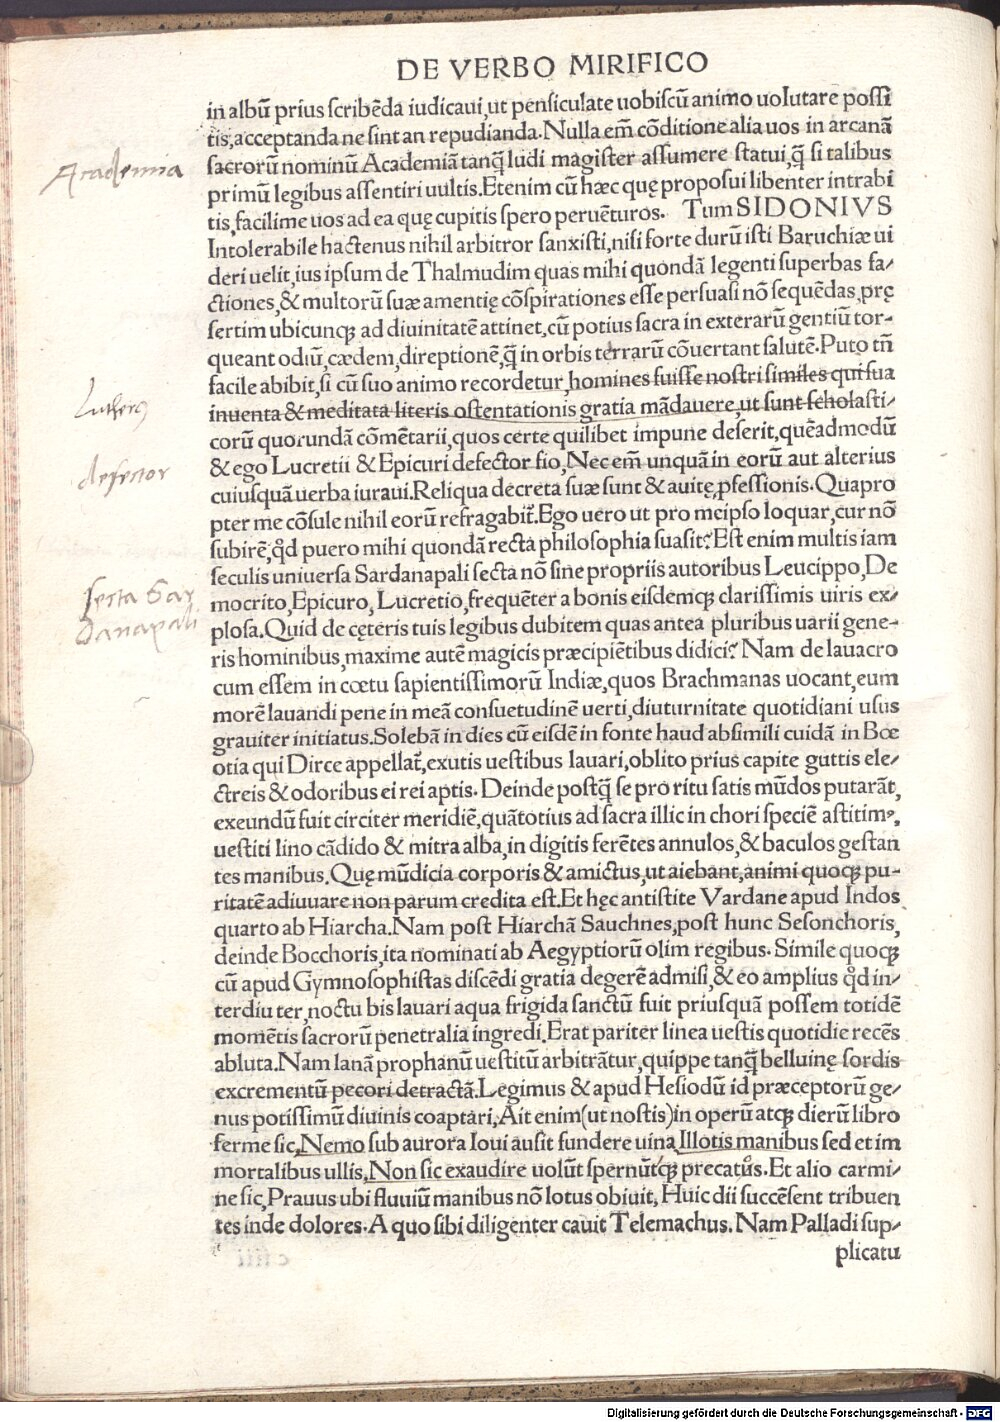 DE VERBO MIRIFICO
in albū prius scribēda iudicaui, ut pensiculate uobiscū animo uolutare possi
tis, acceptanda ne sint an repudianda. Nulla em̄ cōditione alia uos in arcanā
sacrorū nominū Academiā tanq̄ ludi magister assumere statui, q̄ si talibus
primū legibus assentiri uultis. Etenim cū hæc quę proposui libenter intrabi
tis, facilime uos ad ea quę cupitis spero peruēturos. Tum SIDONIVS
Intolerabile hactenus nihil arbitror sanxisti, nisi forte durū isti Baruchiæ ui
deri uelit, ius ipsum de Thalmudim quas mihi quondā legenti superbas fa/
ctiones, & multorū suæ amentię cōspirationes esse persuasi nō sequēdas, prę
sertim ubicunqȝ ad diuinitatē attinet, cū potius sacra in exterarū gentiū tor-
queant odiū, cædem, direptionē, q̄ in orbis terrarū cōuertant salutē. Puto tn̄
facile abibit, si cū suo animo recordetur, homines fuisse nostri similes qui sua
inuenta & meditata literis ostentationis gratia mādauere, ut sunt scholasti-
corū quorundā cōmētarii, quos certe quilibet impune deserit, quēadmodū
& ego Lucretii & Epicuri defector fio, Nec em̄ unquā in eorū aut alterius
cuiusquā uerba iuraui. Reliqua decreta suæ sunt & auitę, pfessionis. Quapro
pter me cōsule nihil eorū refragabit̄. Ego uero ut pro meipso loquar, cur nō
subirē, qd̄ puero mihi quondā recta philosophia suasit? Est enim multis iam
seculis uniuersa Sardanapali secta nō sine propriis autoribus Leucippo, De
mocrito, Epicuro, Lucretio, frequēter a bonis eisdemqȝ clarissimis uiris ex/
plosa. Quid de cęteris tuis legibus dubitem quas antea pluribus uarii gene-
ris hominibus, maxime autē magicis præcipiētibus didici? Nam de lauacro
cum essem in cœtu sapientissimorū Indiæ, quos Brachmanas uocant, eum
morē lauandi pene in meā consuetudinē uerti, diuturnitate quotidiani usus
grauiter initiatus. Solebā in dies cū eisdē in fonte haud absimili cuidā in Bœ
otia qui Dirce appellat̄, exutis uestibus lauari, oblito prius capite guttis ele/
ctreis & odoribus ei rei aptis. Deinde postq̄ se pro ritu satis mūdos putarāt,
exeundū fuit circiter meridiē, quātotius ad sacra illic in chori speciē astitimꝰ,
uestiti lino cādido & mitra alba, in digitis ferētes annulos, & baculos gestan
tes manibus. Quę mūdicia corporis & amictus, ut aiebant, animi quoqȝ pu-
ritatē adiuuare non parum credita est. Et hęc antistite Vardane apud Indos
quarto ab Hiarcha. Nam post Hiarchā Sauchnes, post hunc Sesonchoris,
deinde Bocchoris, ita nominati ab Aegyptiorū olim regibus. Simile quoqȝ
cū apud Gymnosophistas discēdi gratia degerē admisi, & eo amplius qd̄ in/
terdiu ter, noctu bis lauari aqua frigida sanctū fuit priusquā possem totidē
momētis sacrorū penetralia ingredi. Erat pariter linea uestis quotidie recēs
abluta. Nam lanā prophanū uestitū arbitrātur, quippe tanq̄ belluinę sordis
excrementū pecori detractā. Legimus & apud Hesiodū id præceptorū ge/
nus potissimū diuinis coaptari, Ait enim (ut nostis) in operū atqȝ dierū libro
ferme sic, Nemo sub aurora Ioui ausit fundere uina, Illotis manibus sed et im
mortalibus ullis, Non sic exaudire uolūt spernūtqȝ precatus. Et alio carmi/
ne sic, Prauus ubi fluuiū manibus nō lotus obiuit, Huic dii succēsent tribuen
tes inde dolores. A quo sibi diligenter cauit Telemachus. Nam Palladi sup/
plicatu
Academia
Lutherꝰ
defector
secta Sar
danapali
Digitalisierung gefördert durch die Deutsche Forschungsgemeinschaft - DFG